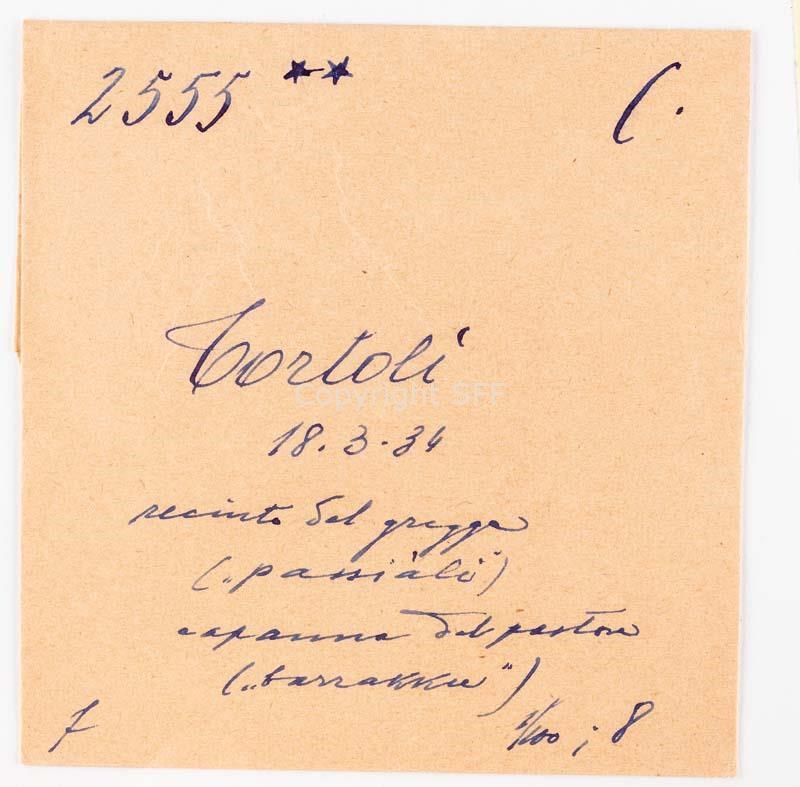 2555 ** C.
Tortolì
Copyright SFF
18.3.34
recinto del gregge
(„passiàli")
capanna del pastore
(„barrakku")
7 1/100 ; 8